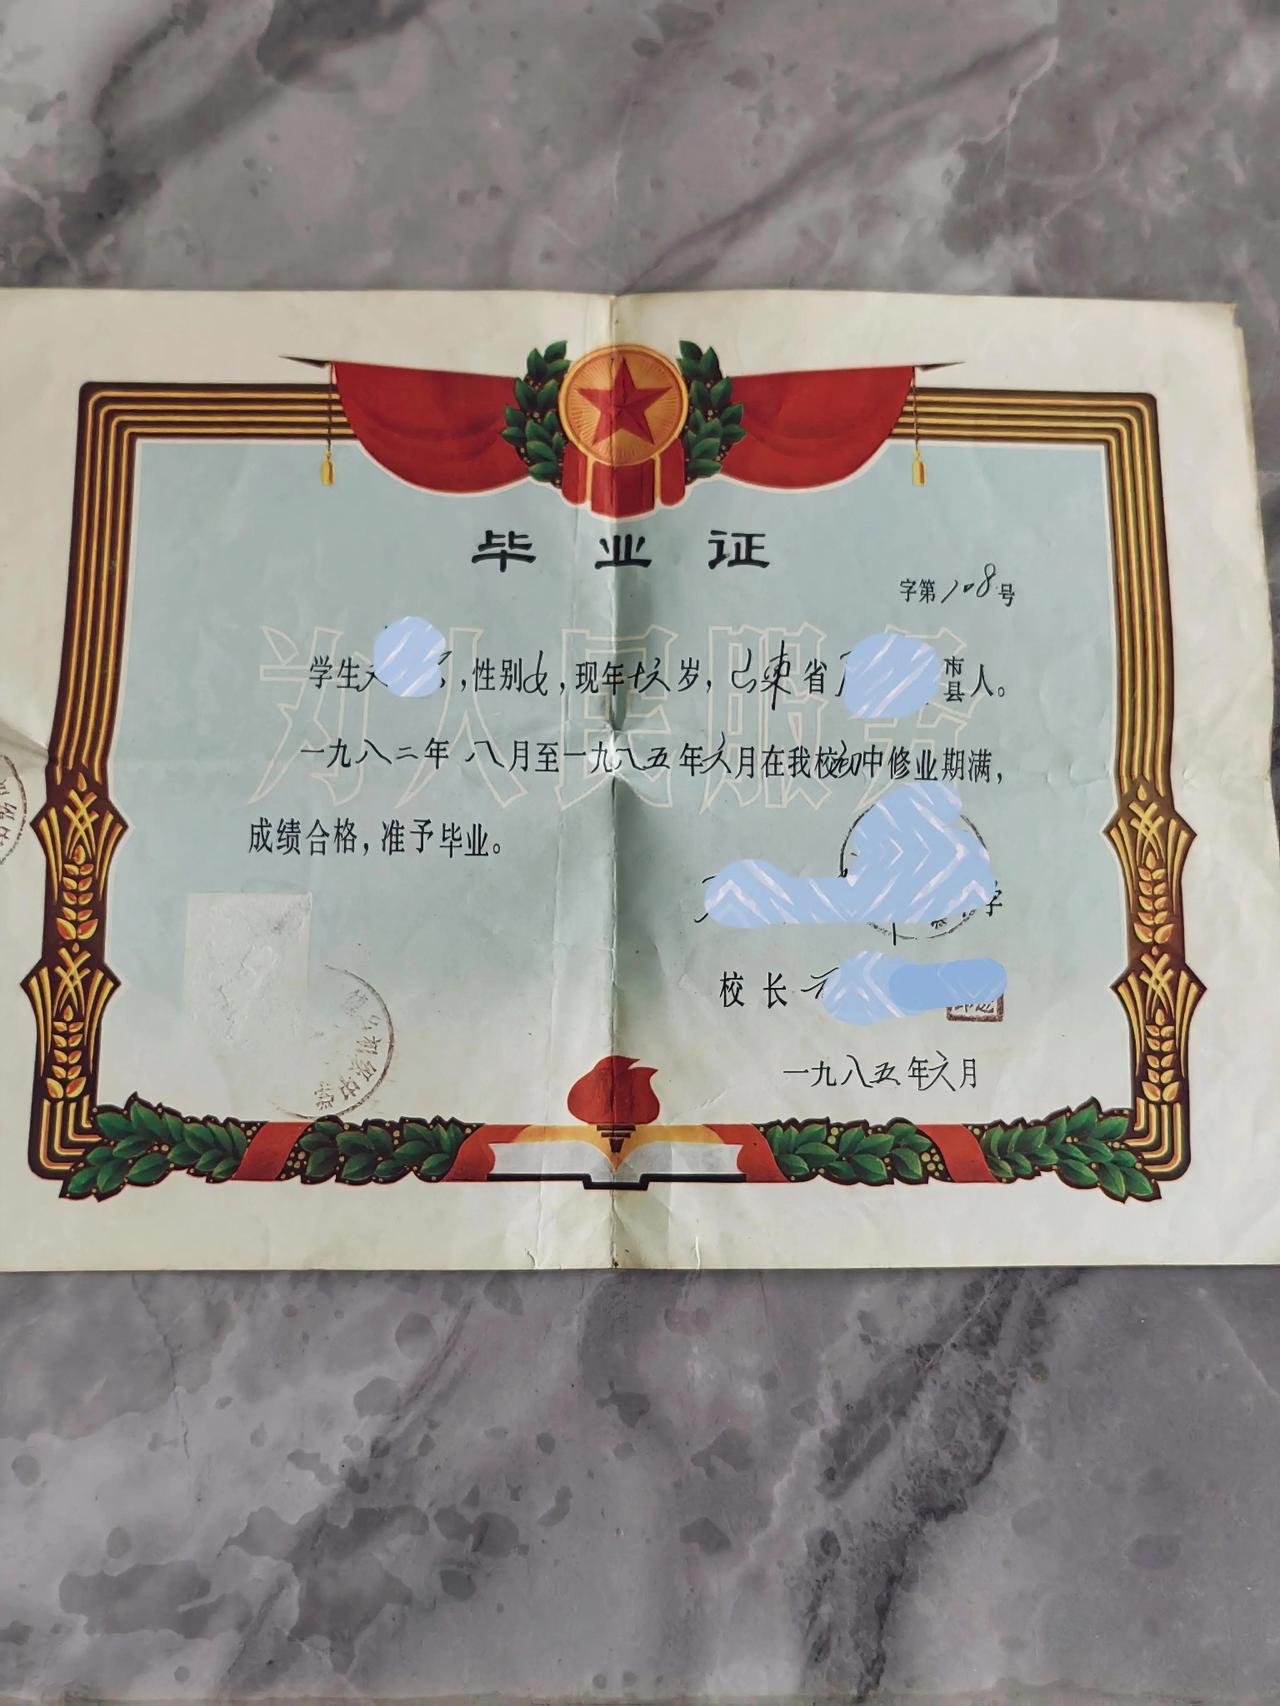 毕业证
字第108号
为人民服务
学生，性别女，现年十六岁，山东省市县人。
一九八二年八月至一九八五年六月在我校初中修业期满，
成绩合格，准予毕业。
校长
一九八五年六月